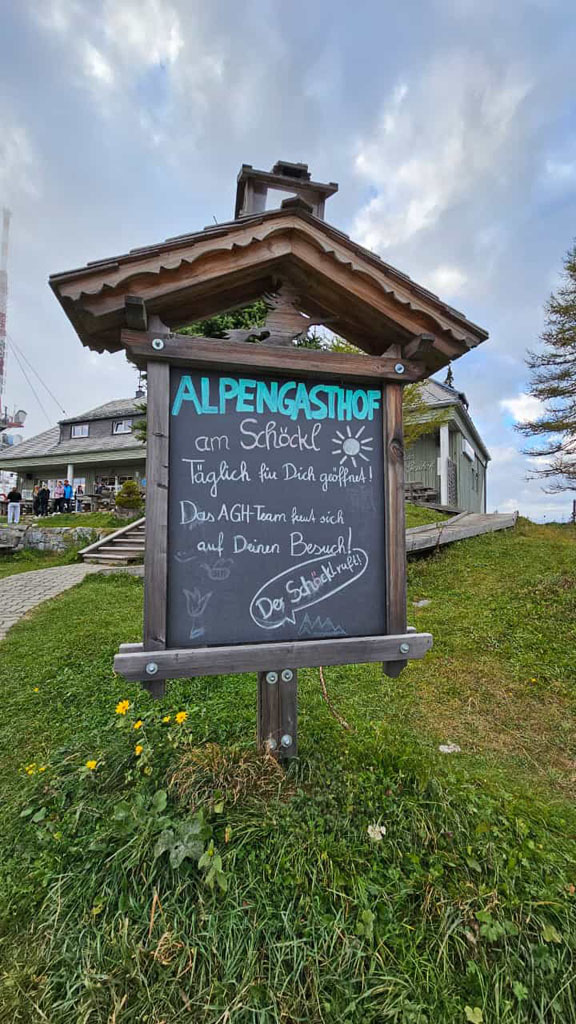 ALPENGASTHOF
am Schöckl
Täglich für Dich geöffnet!
Das AGH-Team freut sich
auf Deinen Besuch!
Der Schöckl ruft!